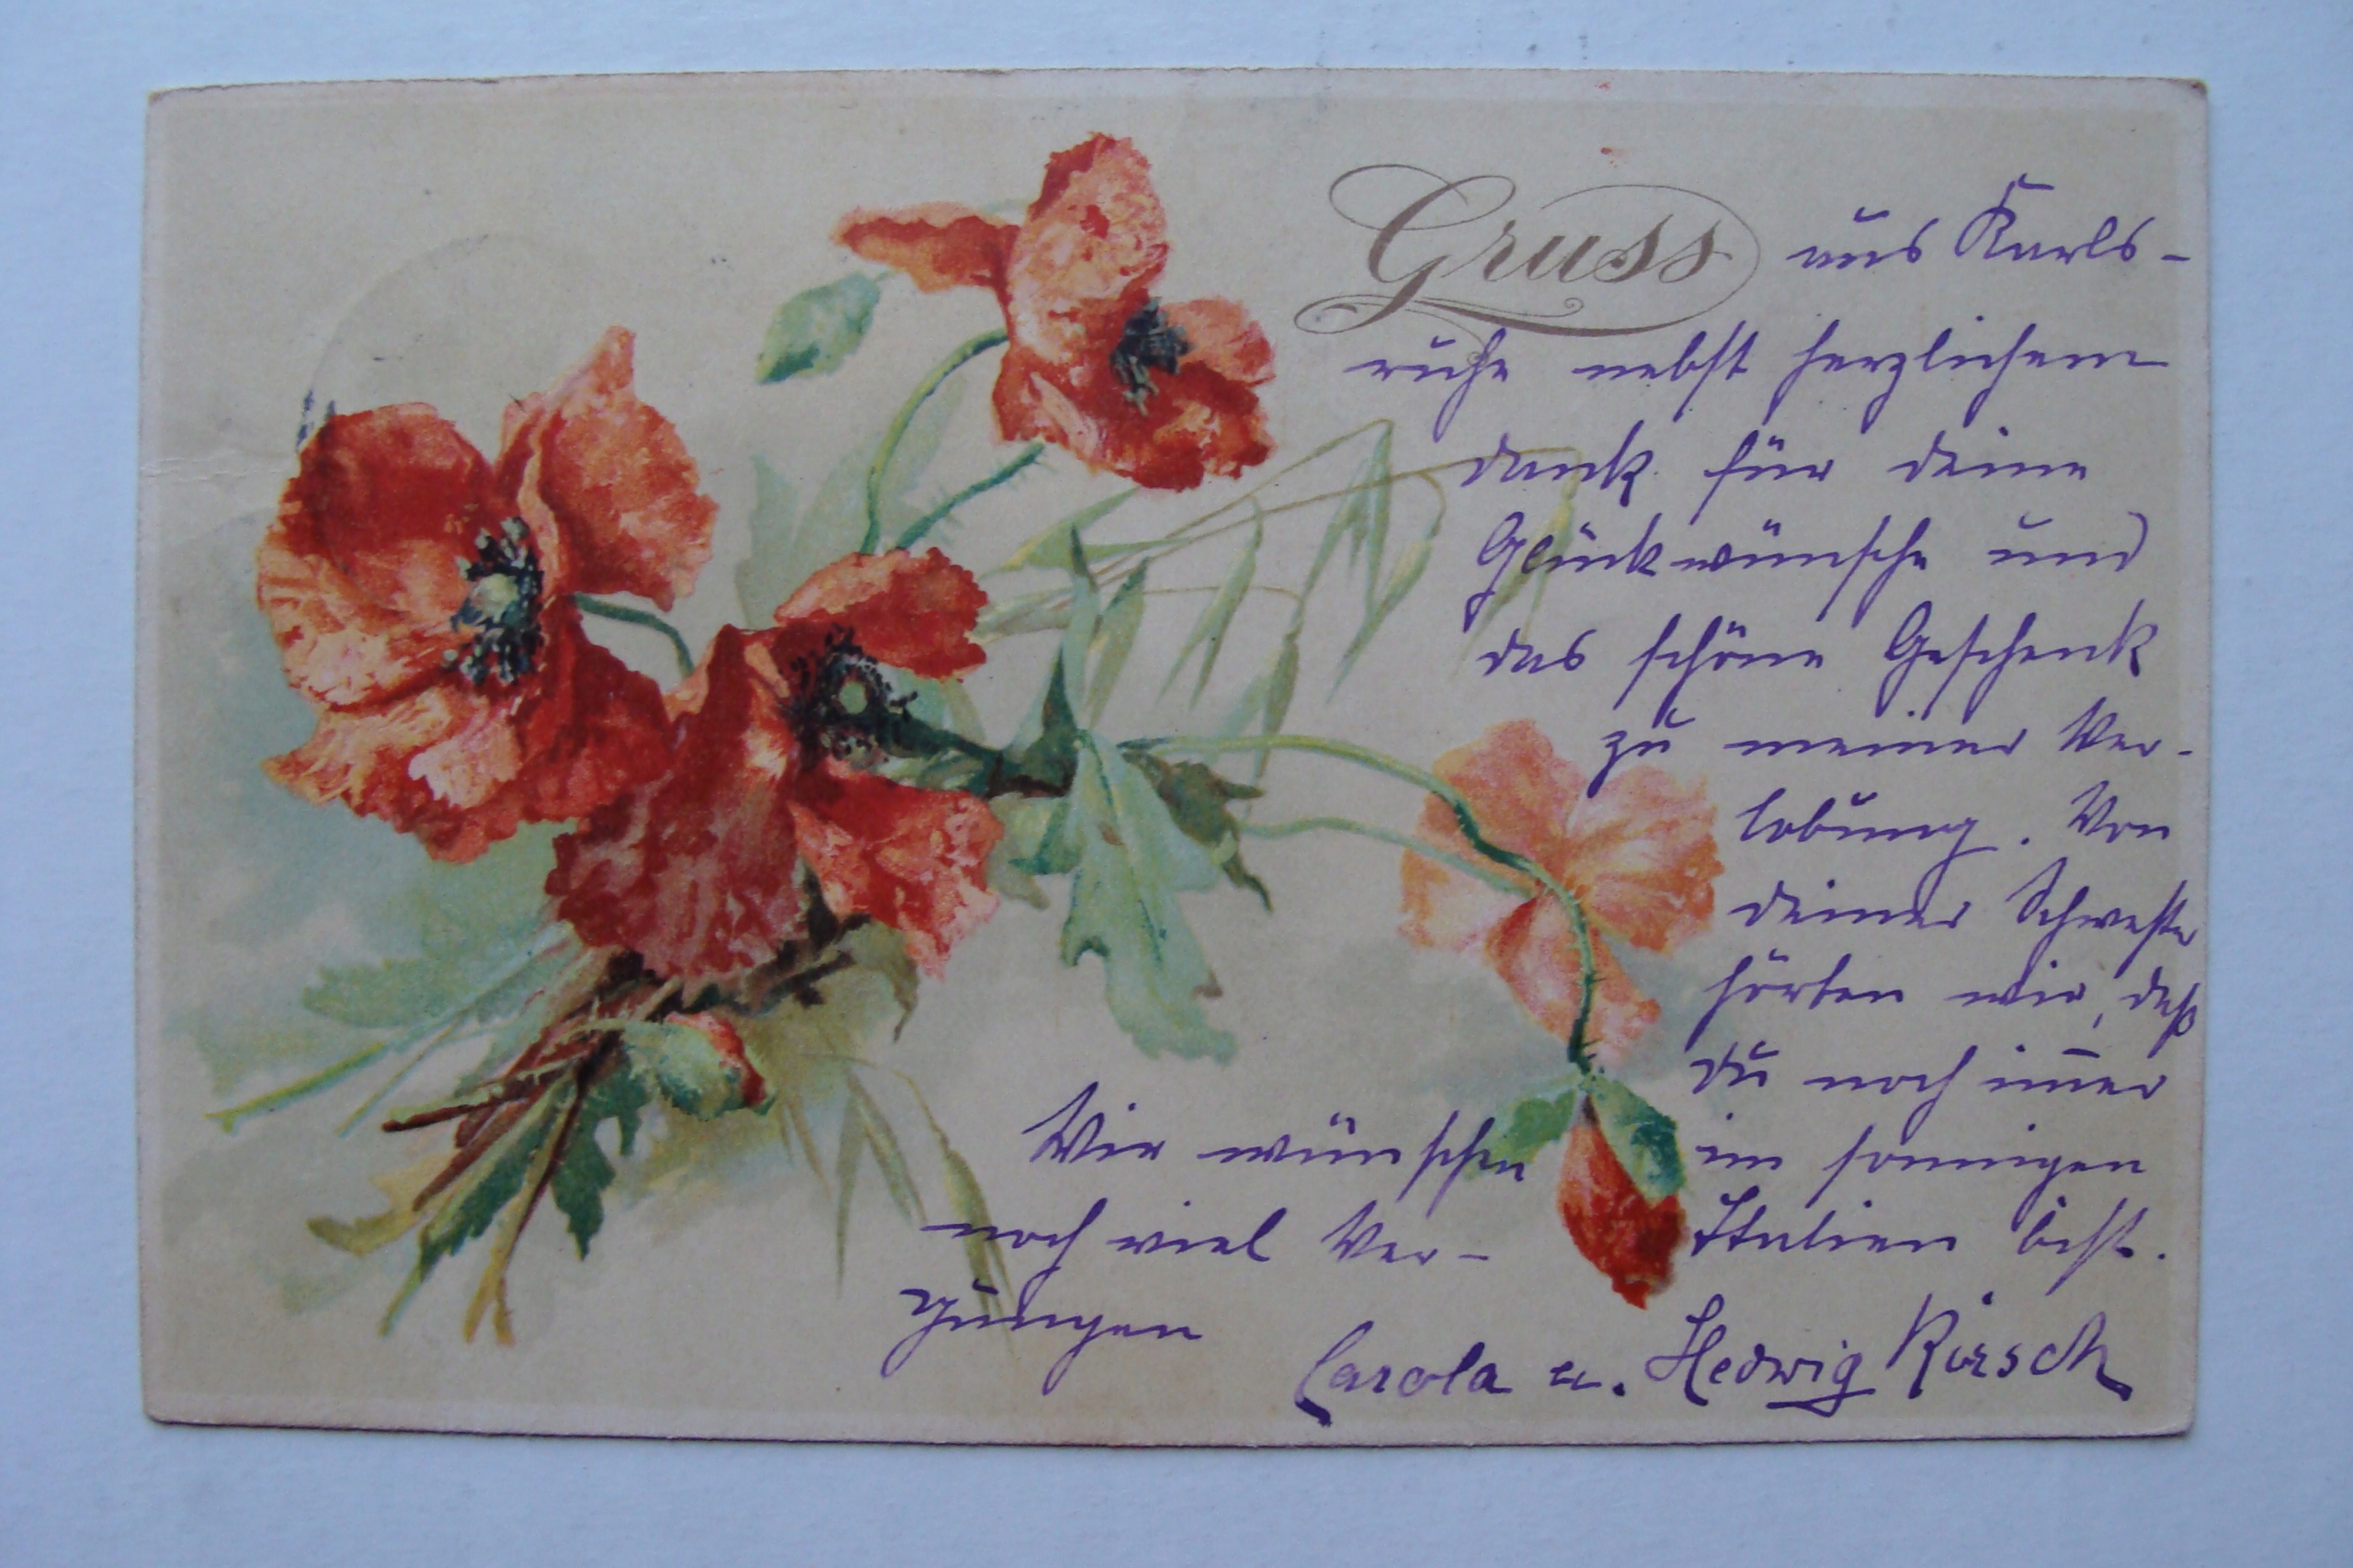 Gruss aus Karls-
ruhe nebst herzlichem
dank für deine
Glückwünsche und
das schöne Geschenk
zu meiner Ver-
lobung. Von
deiner Schwester
hörten wir, daß
du noch im̅er
im sonnigen
Italien bist.
Wir wünschen
noch viel Ver-
gnügen
Carola u. Hedwig Kirsch